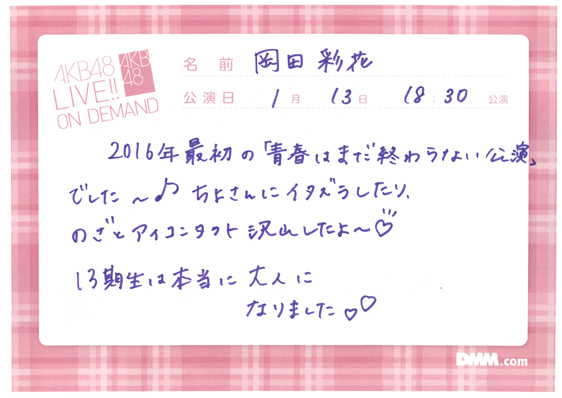 AKB48
LIVE!!
ON DEMAND
AKB
48
名前 岡田彩花
公演日 1月 13日 18:30 公演
2016年最初の「青春はまだ終わらない公演」
でした〜♪ ちよさんにイタズラしたり、
のぎとアイコンタクト沢山したよ〜♡
13期生は本当に大人に
なりました♡♡
DMM.com